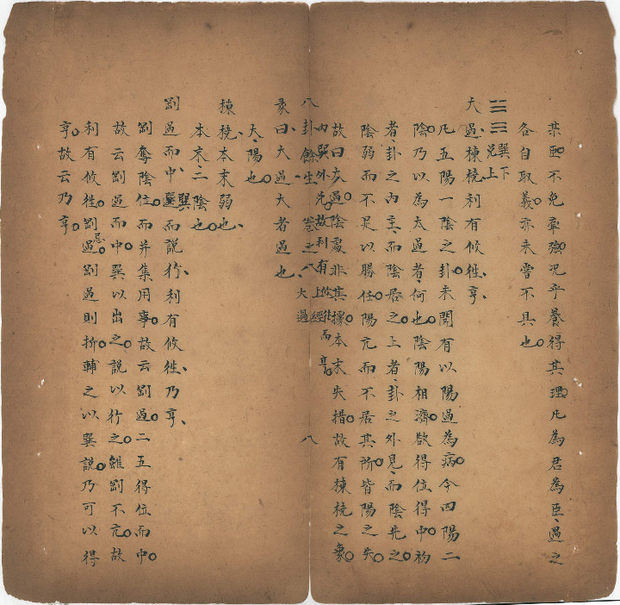 不免牽強況乎養得其理凡為君為臣過之
各自取義亦未嘗不具也
巽下兌上
大過棟橈利有攸往亨
凡五陽一陰之卦未聞有以陽過為病今四陽二
陰乃以為太過者何也陰陽相濟欲得位得中初
者卦之內主而陰居之上者卦之外見而陰先之
陰弱而不足以勝任陽亢而不居其所皆陽之失
故曰大過陰處非其據本末失措故有棟橈之象
內巽外兌故利有攸往而亨
八卦餘生 卷之八 上經 大過 八
彖曰大過大者過也
大陽也
棟橈本末弱也
本末二陰也
剛過而中巽而說行利有攸往乃亨
剛奪陰位而并集用事故云剛過二五得位而中
故云剛過而中巽以出之說以行之雖剛不亢故
利有攸往剛過剛過則折輔之以巽說乃可以得
亨故云乃亨